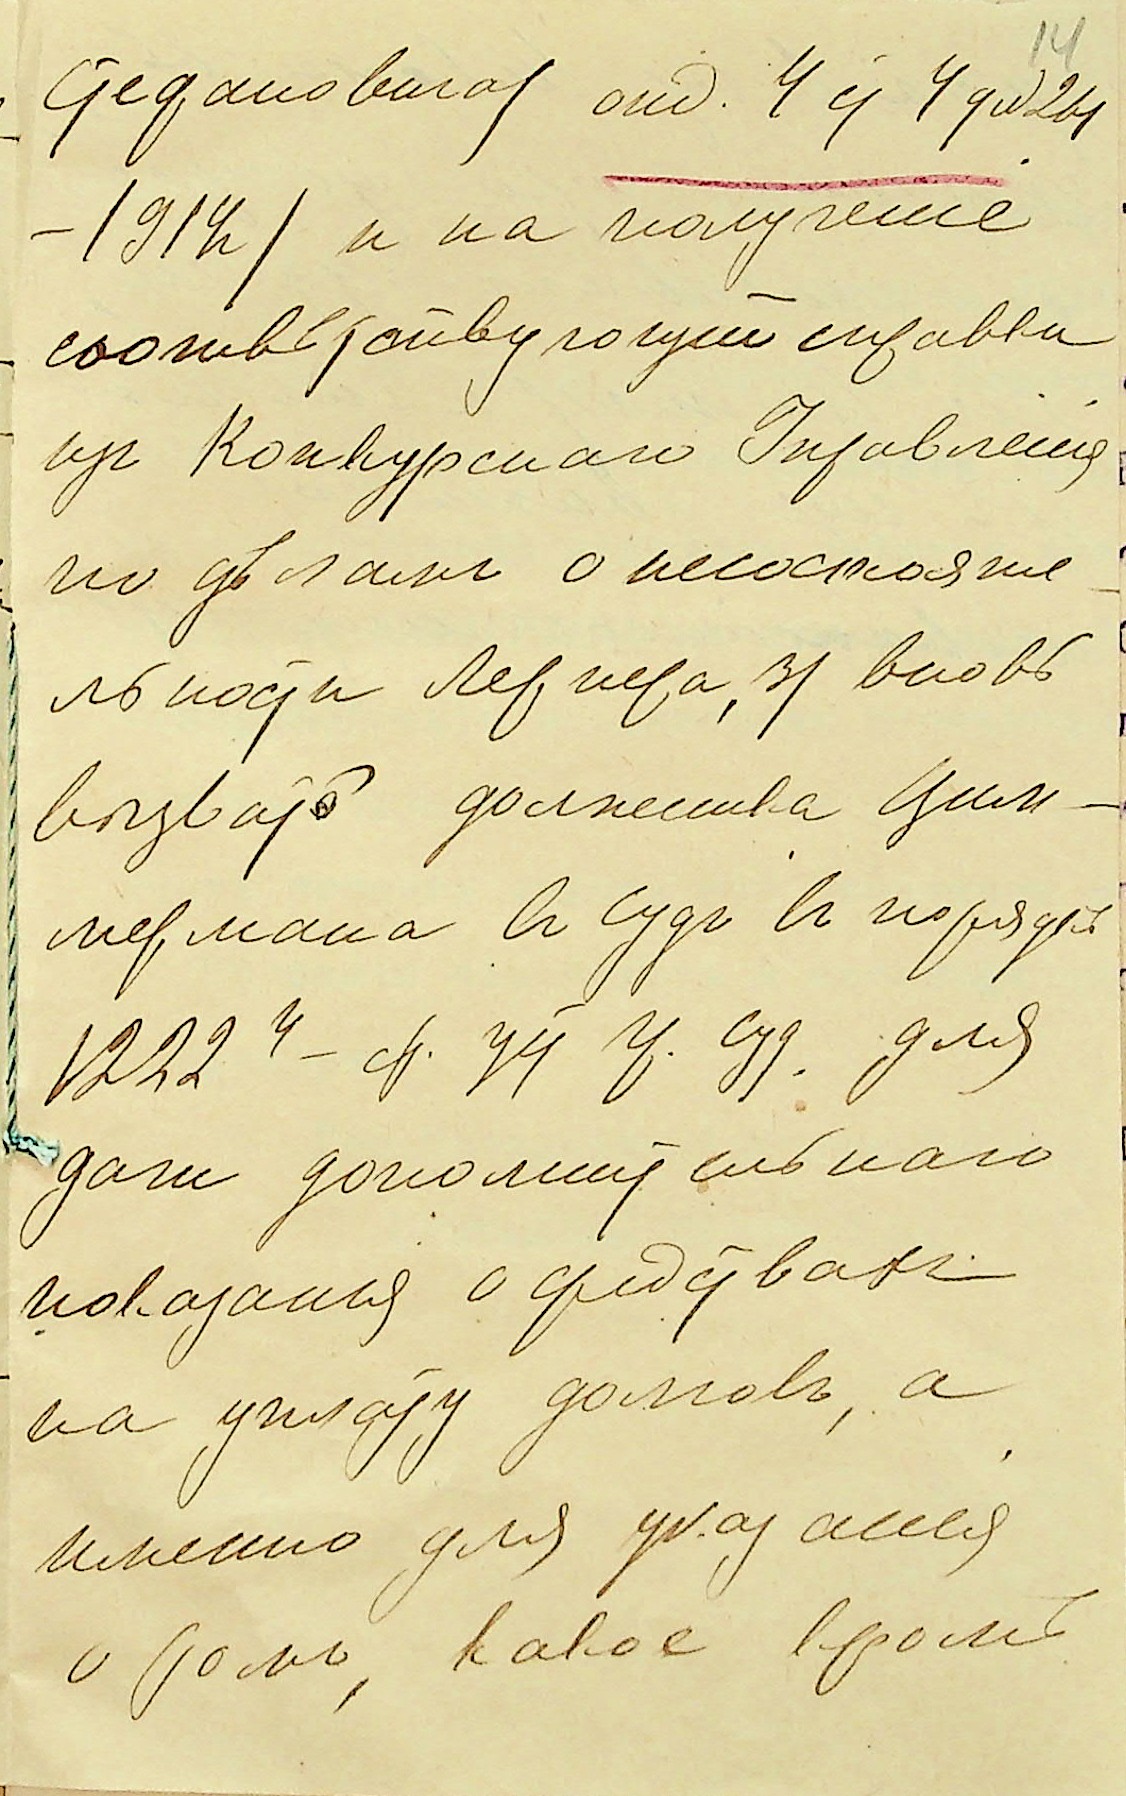 14
Стефановича/ отд. 4 ст 4 д №261
-1914/ и на полученіе
соотвѣтствующей справки
изъ Конкурснаго Управленія
по дѣламъ о несостояте
льности Лернера, 3/ вновь
вызвать должника Цим-
мермана въ Судъ въ порядкѣ
1222⁴ - ст. уст гр. суд. для
дачи дополнительнаго
показанія о средствахъ
на уплату долговъ, а
именно для указанія
о томъ, какое кромѣ